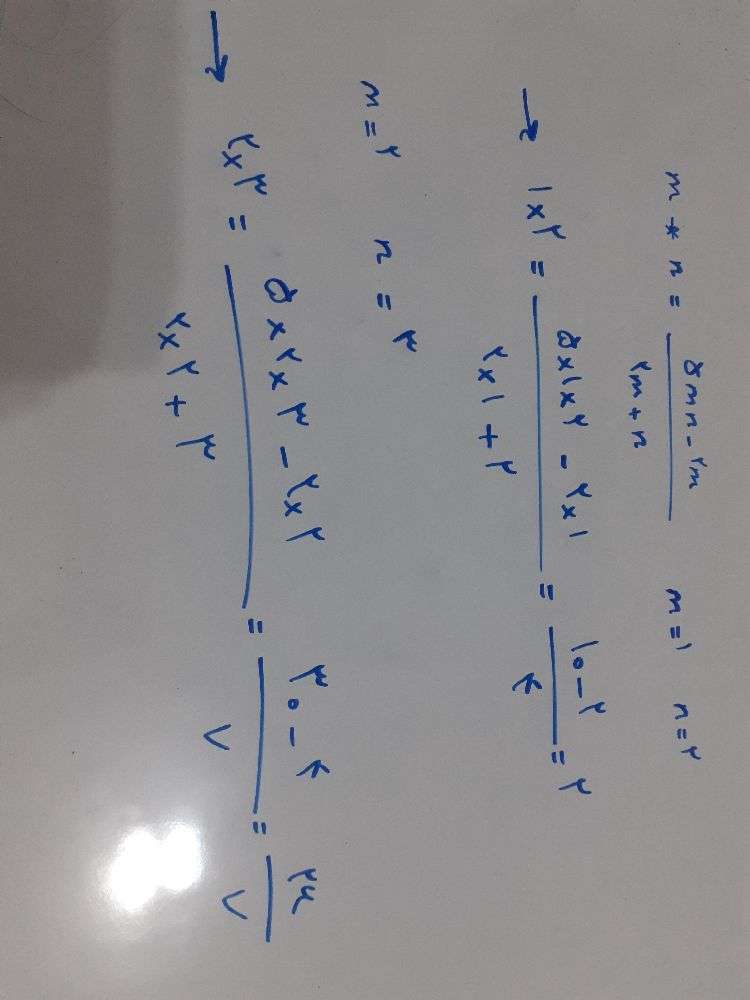 m * n = (۵mn - ۲m) / (۲m + n)   m = ۱   n = ۲
→ ۱ × ۲ = (۵ × ۱ × ۲ - ۲ × ۱) / (۲ × ۱ + ۲) = (۱۰ - ۲) / ۴ = ۲
m = ۲   n = ۳
→ ۲ × ۳ = (۵ × ۲ × ۳ - ۲ × ۲) / (۲ × ۲ + ۳) = (۳۰ - ۴) / ۷ = ۲۶ / ۷